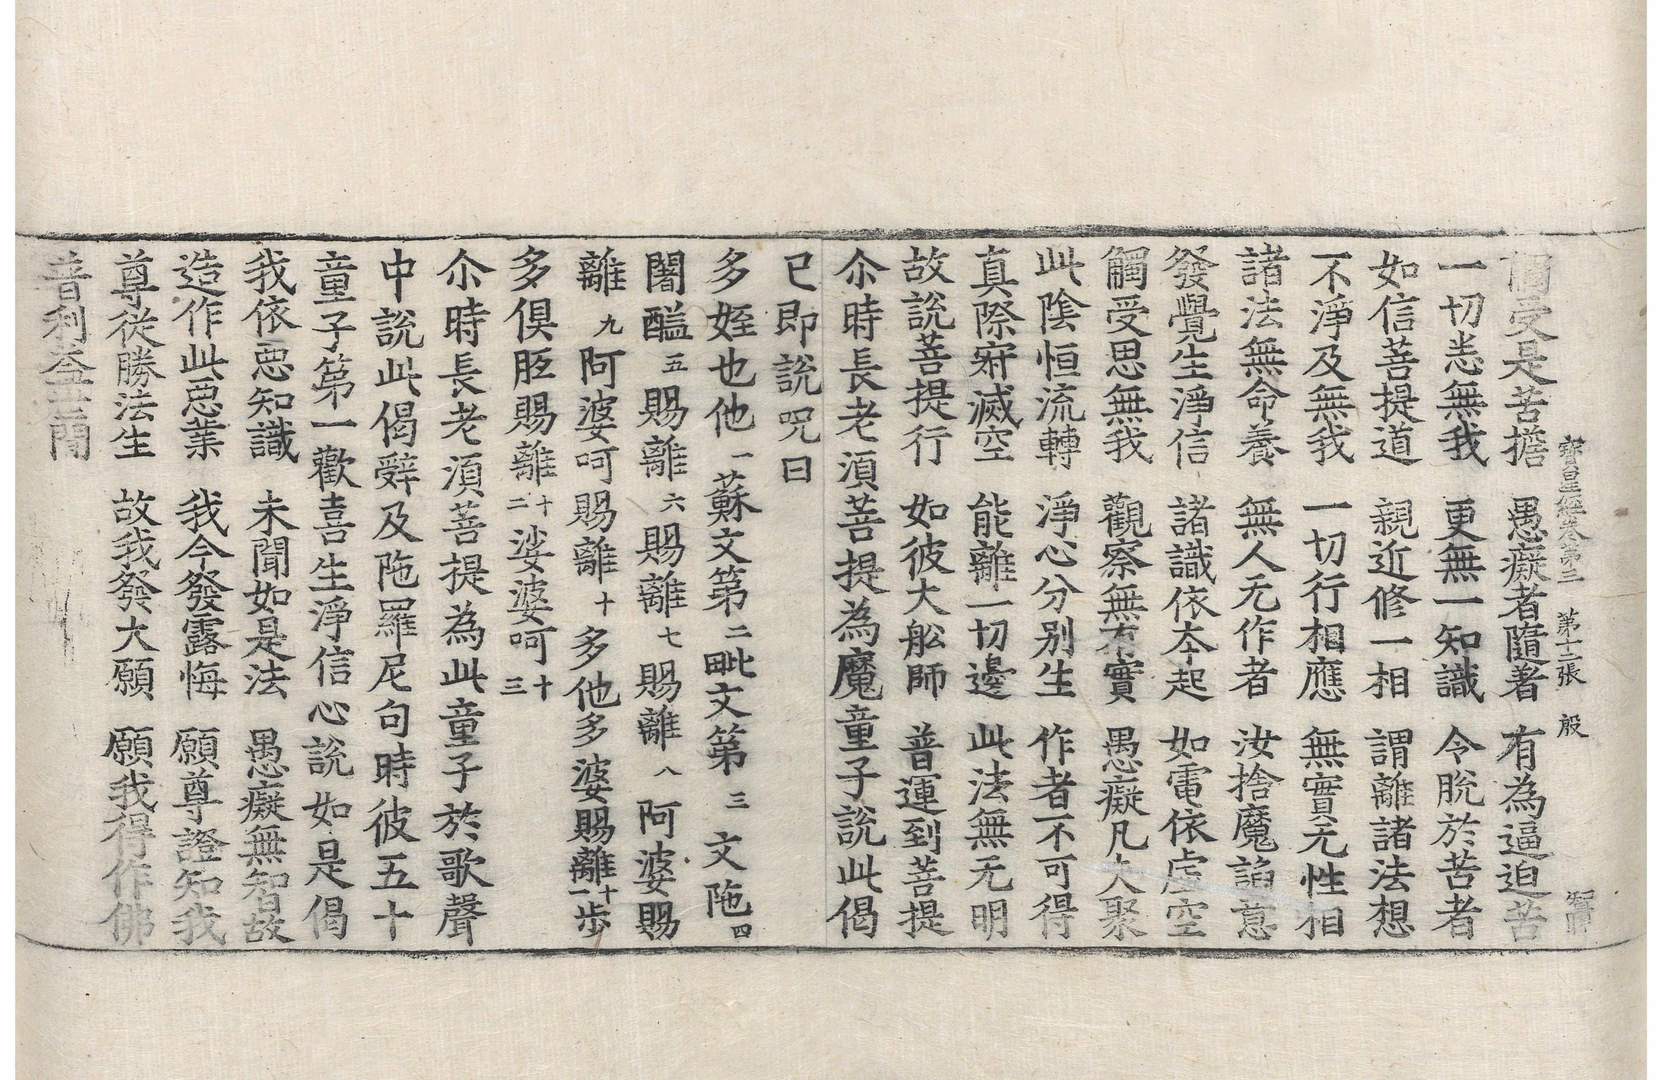 寶星經卷第三　第十二張　殷
觸受是苦擔　愚癡者隨著　有為逼迫苦
一切悉無我　更無一知識　令脫於苦者
如信菩提道　親近修一相　謂離諸法想
不淨及無我　一切行相應　無實无性相
諸法無命養　無人无作者　汝捨魔諂意
發覺生淨信　諸識依夲起　如電依虛空
觸受思無我　觀察無有實　愚癡凡夫聚
此陰恒流轉　淨心分别生　作者不可得
真際寂滅空　能離一切邊　此法無无明
故說菩提行　如彼大舩師　普運到菩提
尒時長老湏菩提為魔童子說此偈
已即說呪曰
多姪也他一蘇文第二毗文第三文陁四
闍醯五賜離六賜離七賜離八阿婆賜
離九阿婆呵賜離十多他多婆賜離十一步
多俱胝賜離十二娑婆呵十三
尒時長老湏菩提為此童子於歌聲
中說此偈辤及陁羅尼句時彼五十
童子第一歡喜生淨信心說如是偈
我依惡知識　未聞如是法　愚癡無智故
造作此惡業　我今發露悔　願尊證知我
尊從勝法生　故我發大願　願我得作佛
普利益世間